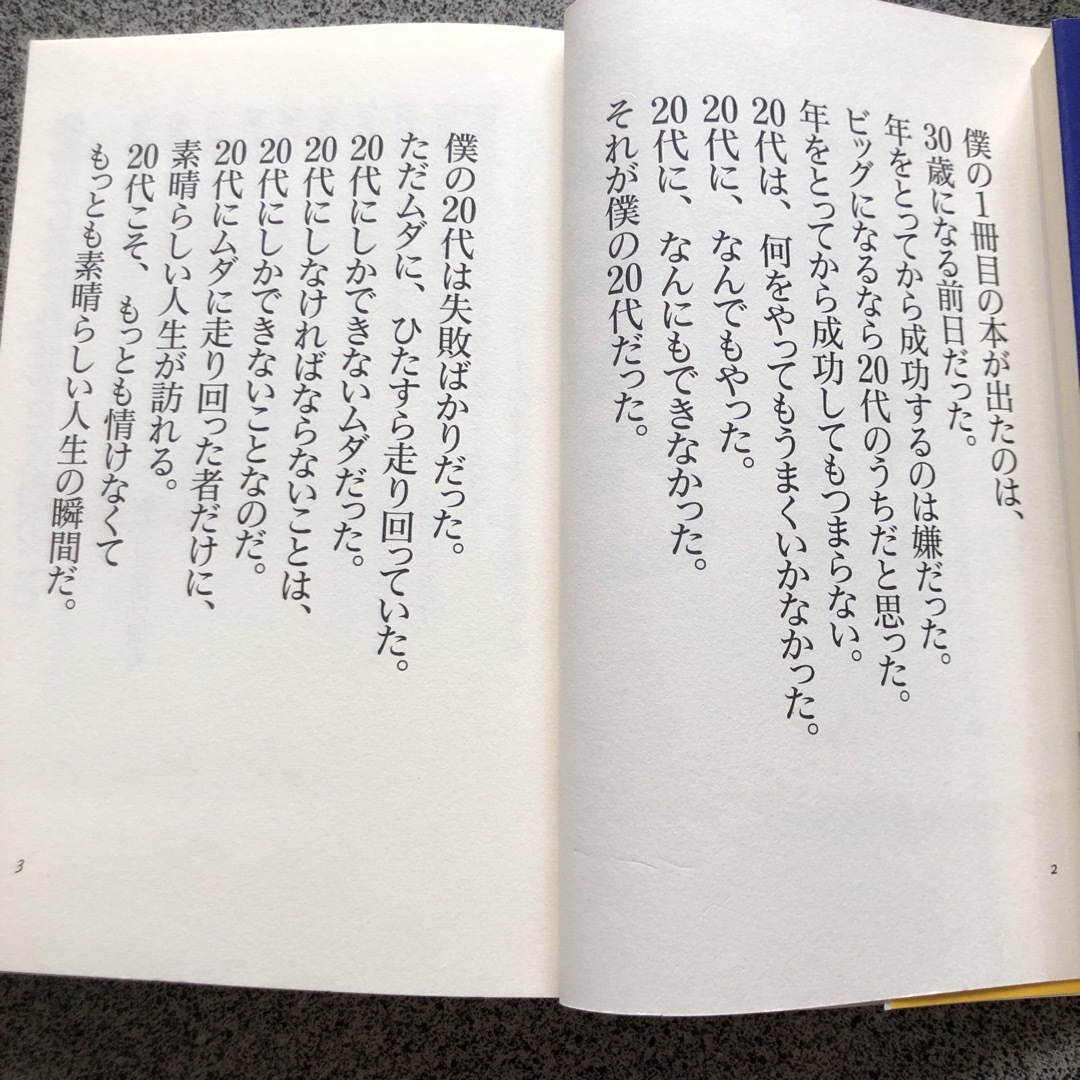 僕の1冊目の本が出たのは、
30歳になる前日だった。
年をとってから成功するのは嫌だった。
ビッグになるなら20代のうちだと思った。
年をとってから成功してもつまらない。
20代は、何をやってもうまくいかなかった。
20代に、なんでもやった。
20代に、なんにもできなかった。
それが僕の20代だった。
2
僕の20代は失敗ばかりだった。
ただムダに、ひたすら走り回っていた。
20代にしかできないムダだった。
20代にしなければならないことは、
20代にしかできないことなのだ。
20代にムダに走り回った者だけに、
素晴らしい人生が訪れる。
20代こそ、もっとも情けなくて
もっとも素晴らしい人生の瞬間だ。
3